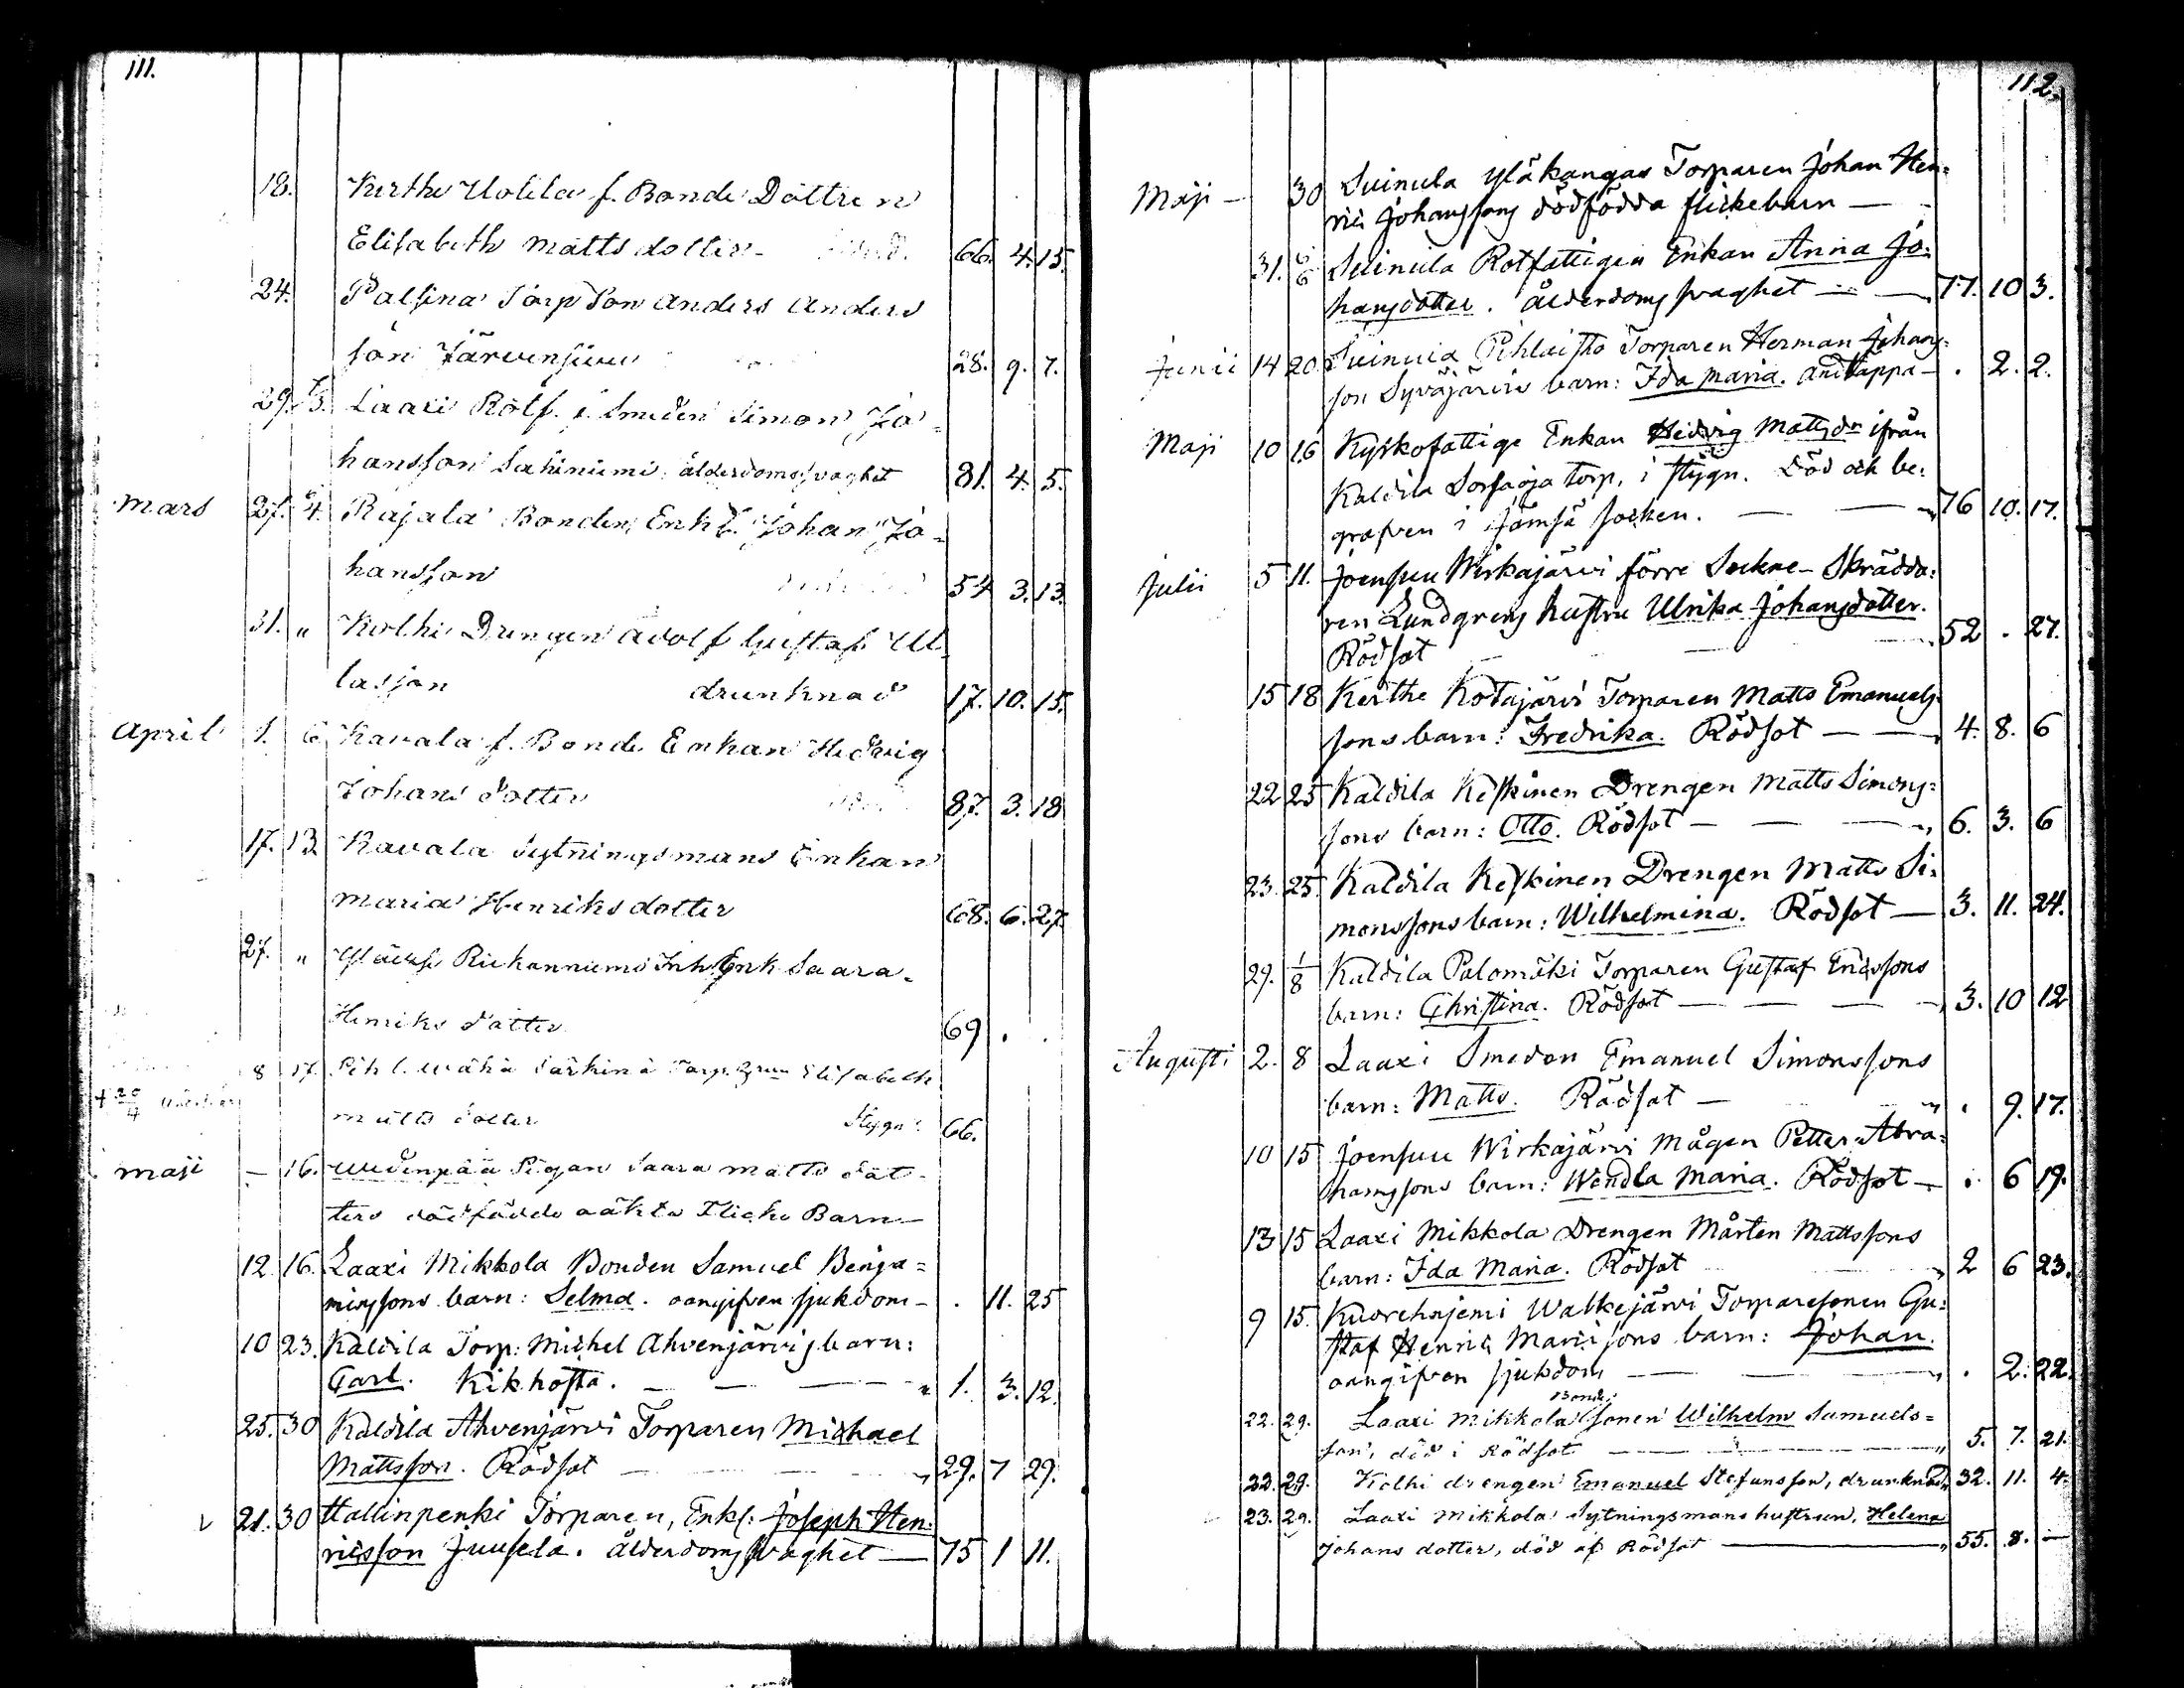 111.
18. Kerthe Uotila f. Bonde Dottren
Elisabeth Mattsdotter 66. 4. 15.
24. Palsina Torp Son Anders Anders
son Järvensivu 28. 9. 7.
29. Laaxi Rotf. f. Smeden Simon Jo-
hansson Sahiniemi ålderdomssvaghet 81. 4. 5.
Mars 27. 4. Rajala Bonden Enkl. Johan Jo-
hansson 54 3. 13.
31. " Kolhi Drengen Adolf Gustaf Ul-
lasson drunknad 17. 10. 15.
April 1. 6 Kavala f. Bonde Enkan Hedvig
Johans dotter 87. 3. 18
17. 13. Kavala Sytningsmans Enkan
Maria Henriks dotter 68. 6. 27.
27. " Inh Enk Saara
Henriks dotter 69 .
8 17. Elisabeth
Matts dotter Stygn 66.
Maji - 16. Pigan Saara Matts dot-
ters dödfödde oäkta Flicke Barn
12. 16. Laaxi Mikkola Bonden Samuel Benja=
minssons barn: Selma. oangifven sjukdom - . 11. 25
10 23. Kaldila Torp: Michel Ahvenjärvis barn:
Carl. Kikhosta. — — — " 1. 3. 12.
25. 30 Kaldila Ahvenjärvi Torparen Michael
Mattsson. Rödsot — " 29. 7 29.
21. 30 Hallinpenki Torparen, Enkl: Joseph Hen:
ricsson Juusela. ålderdomssvaghet — 75 1 11.
112.
Maji - 30 Suinula Yläkangas Torparen Johan Hen=
ric Johanssons dödfödda flickebarn —
31. 6/6 Suinula Rotfattigen Enkan Anna Jo:
hansdotter. Ålderdomssvaghet — — 77. 10 3.
Junii 14 20 Suinula Pihlaisto Torparen Herman Johans=
son Syväjärvis barn: Ida Maria. Andtäppa - . 2. 2.
Maji 10 16 Kyrkofattige Enkan Hedvig Mattsdr ifrån
Kaldila Sorsaoja torp, i stygn. Död och be:
grafven i Jämsä socken. — — " 76 10. 17.
Julii 5 11. Joensuu Wirkajärvi förre Sockne-Skrädda:
ren Lundgrens hustru Ulrika Johansdotter.
Rödsot — — " 52 . 27.
15 18 Kerthe Kotajärvi Torparen Matts Emanuels
sons barn: Fredrika. Rödsot — — " 4. 8. 6
22 25 Kaldila Keskinen Drengen Matts Simons=
sons barn: Otto. Rödsot — — — " 6. 3. 6
23. 25. Kaldila Keskinen Drengen Matts Si:
monssons barn: Wilhelmina. Rödsot — 3. 11. 24.
29. 1/8 Kaldila Palomäki Torparen Gustaf Ericssons
barn: Christina. Rödsot — — — " 3. 10 12
Augusti 2. 8 Laaxi Smeden Emanuel Simonssons
barn: Matts. Rödsot — " . 9. 17.
10 15 Joensuu Wirkajärvi Mågen Petter Abra:
hamssons barn: Wendla Maria. Rödsot — . 6 19.
13 15 Laaxi Mikkola Drengen Mårten Mattssons
barn: Ida Maria. Rödsot " 2 6 23.
9 15. Kuorehnjemi Walkejärvi Torparesonen Gu:
staf Henric sons barn: Johan.
oangifven sjukdom — — " . 2. 22.
22. 29. Laaxi Mikkola Bonde sonen Wilhelm Samuels=
son, död i Rödsot — — " 5. 7. 21.
22. 29. Kolhi drengen Emanuel Stefansson, drunknad " 32. 11. 4.
23. 29. Laaxi Mikkola Sytningsmans hustrun, Helena
Johans dotter, död af Rödsot — " 55. 8. —